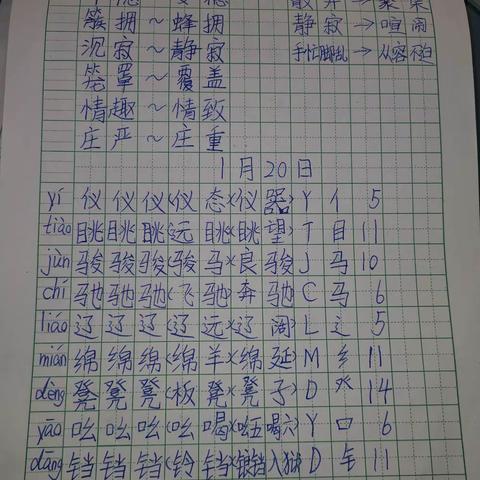 簇拥~蜂拥 静寂→喧闹
沉寂~静寂 手忙脚乱→从容不迫
笼罩~覆盖
情趣~情致
庄严~庄重
1月20日
yí 仪仪仪(仪态)(仪器) Y 亻 5
tiào 眺眺眺(远眺)(眺望) T 目 11
jùn 骏骏骏(骏马)(良骏) J 马 10
chí 驰驰驰(飞驰)(奔驰) C 马 6
liáo 辽辽辽(辽远)(辽阔) L 辶 5
mián 绵绵绵(绵羊)(绵延) M 纟 11
dèng 凳凳凳(板凳)(凳子) D 14
yāo 吆吆吆(吆喝)(吆五喝六) Y 口 6
dāng 铛铛铛(铃铛)(锒铛入狱) D 钅 11